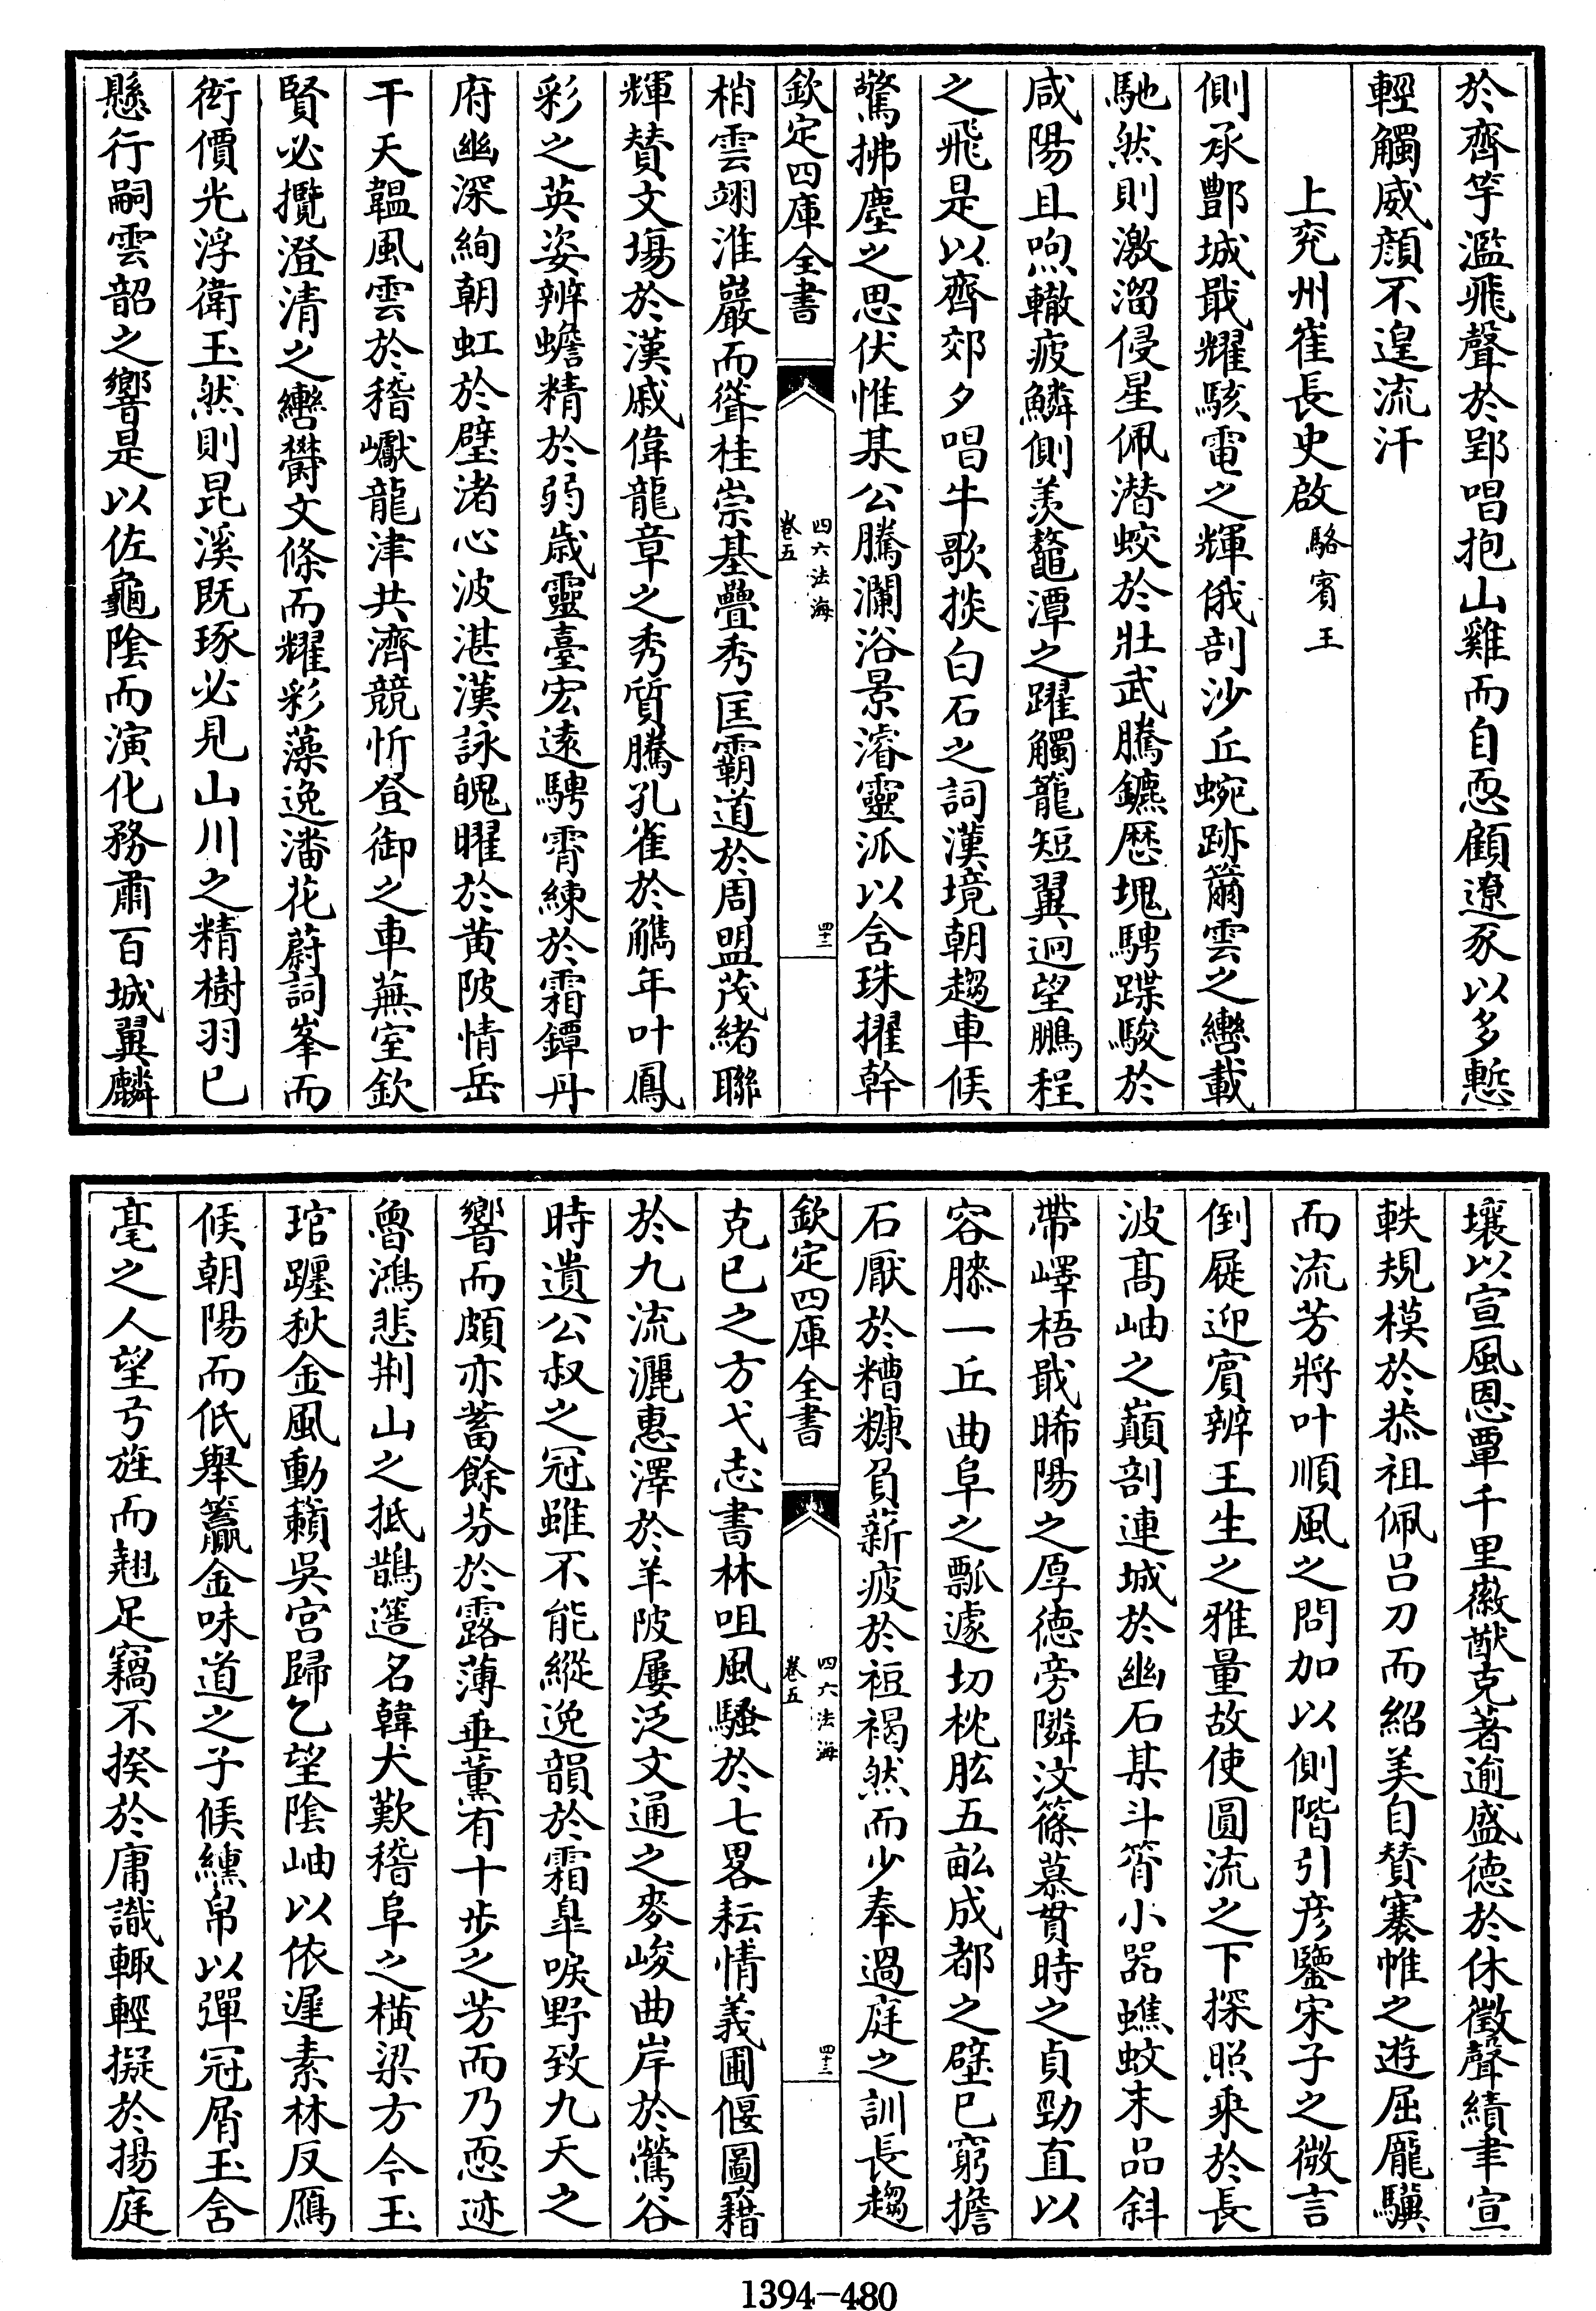 於齊竽濫飛聲於郢唱抱山雞而自恧顧遼豕以多慙
輕觸威顔不遑流汗
上兖州崔長史啟駱賓王
側承酆城戢耀駭電之輝俄剖沙丘蜿跡籋雲之轡載
馳然則激溜侵星佩潛蛟於壯武騰鑣歴塊騁蹀駿於
咸陽且呴轍疲鱗側羨鼇潭之躍觸籠短翼迥望鵬程
之飛是以齊郊夕唱牛歌掞白石之詞漢境朝趨車候
驚拂塵之思伏惟某公騰瀾浴景濬靈派以含珠擢幹
欽定四庫全書
四六法海
卷五
四十二
梢雲翊淮巖而聳桂崇基疊秀匡霸道於周盟茂緒聯
輝賛文塲於漢戚偉龍章之秀質騰孔雀於觿年叶鳳
彩之英姿辨蟾精於弱歳靈臺宏逺騁霄練於霜鐔丹
府幽深絢朝虹於璧渚心波湛漢詠魄曜於黄陂情岳
干天韞風雲於稽巘龍津共濟競忻登御之車蕪室欽
賢必攬澄清之轡欝文條而耀彩藻逸潘花蔚詞峯而
衒價光浮衛玉然則昆溪既琢必見山川之精樹羽已
懸行嗣雲韶之響是以佐龜隂而演化務肅百城翼麟
壤以宣風恩覃千里徽猷克著逾盛德於休徵聲績聿宣
軼規模於恭祖佩吕刀而紹美自賛褰帷之遊屈龎驥
而流芳將叶順風之問加以側階引彦鑒宋子之微言
倒屣迎賓辨王生之雅量故使圓流之下探照乘於長
波髙岫之巔剖連城於幽石某斗筲小器蟭蚊末品斜
帶嶧梧戢晞陽之厚德旁隣汶篠慕貫時之貞勁直以
容膝一丘曲阜之瓢遽切枕肱五畝成都之壁已窮擔
石厭於糟糠負薪疲於裋褐然而少奉過庭之訓長趨
欽定四庫全書
四六法海
卷五
四十三
克已之方弋志書林咀風騷於七畧耘情義圃偃圖籍
於九流灑惠澤於羊陂屢泛文通之麥峻曲岸於鶯谷
時遺公叔之冠雖不能縱逸韻於霜臯唳野致九天之
響而頗亦蓄餘芬於露薄垂薫有十步之芳而乃恧迹
魯鴻悲荆山之抵鵲簉名韓犬歎稽阜之横梁方今玉
琯躔秋金風動籟吳宫歸乙望隂岫以依遲素林反鴈
候朝陽而低舉籯金味道之子候纁帛以彈冠屑玉含
毫之人望弓旌而翹足竊不揆於庸識輙輕擬於揚庭
1394-480